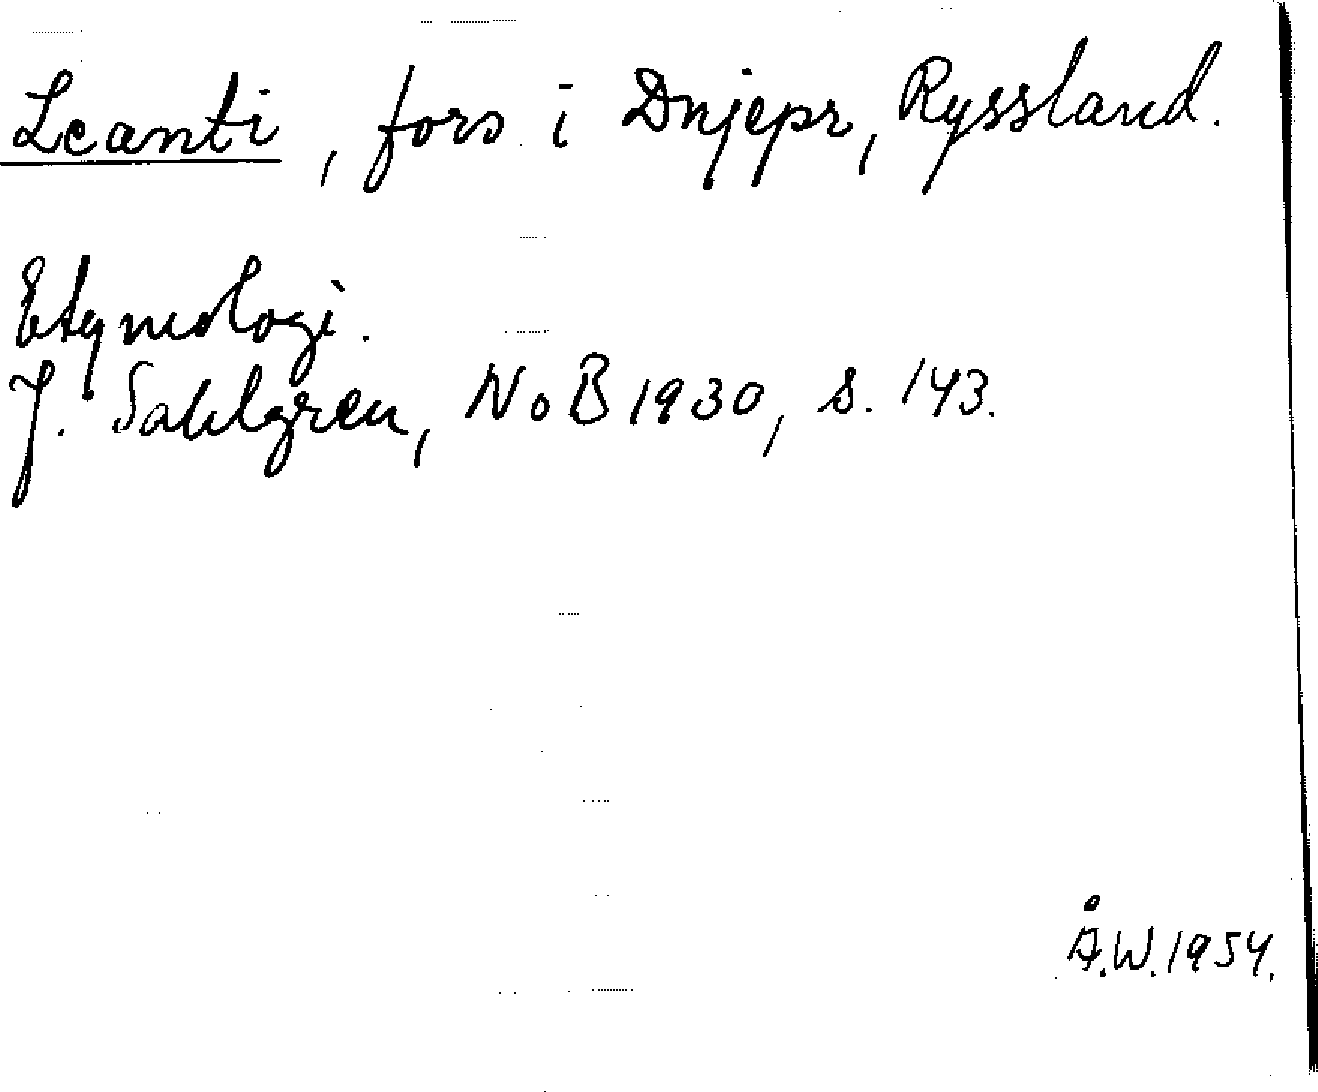 Leanti, fors i Dnjepr, Ryssland.
Etymologi.
J. Sahlgren, NoB 1930, s. 143.
Å.W. 1954.